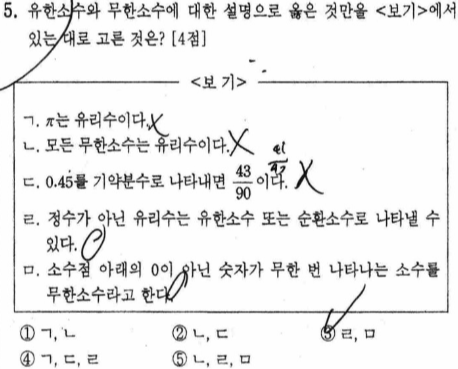 5. 유한소수와 무한소수에 대한 설명으로 옳은 것만을 <보기>에서
있는 대로 고른 것은? [4점]
<보 기>
ㄱ. π는 유리수이다. X
ㄴ. 모든 무한소수는 유리수이다. X
ㄷ. 0.45를 기약분수로 나타내면 43/90 이다. X
ㄹ. 정수가 아닌 유리수는 유한소수 또는 순환소수로 나타낼 수
있다.
ㅁ. 소수점 아래의 0이 아닌 숫자가 무한 번 나타나는 소수를
무한소수라고 한다.
① ㄱ, ㄴ ② ㄴ, ㄷ ③ ㄹ, ㅁ
④ ㄱ, ㄷ, ㄹ ⑤ ㄴ, ㄹ, ㅁ